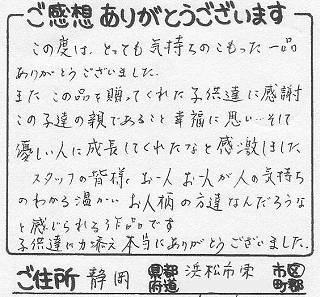 ご感想 ありがとうございます
この度は、とっても気持ちのこもった一品
ありがとうございました。
また この品を贈ってくれた子供達に感謝
この子達の親であること 幸福に思い…そして
優しい人に成長してくれたなと感激しました。
スタッフの皆様、お一人お一人が人の気持ち
のわかる温かい お人柄の方達なんだろうな
と感じられる作品です
子供達に力添え 本当にありがとうございました。
ご住所 静岡 都道府県 浜松市東 市区町郡